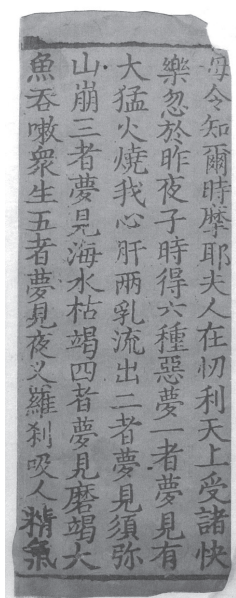 母令知爾時摩耶夫人在忉利天上受諸快
樂忽於昨夜子時得六種惡夢一者夢見有
大猛火燒我心肝兩乳流出二者夢見須弥
山崩三者夢見海水枯竭四者夢見磨竭大
魚吞噉衆生五者夢見夜叉羅刹吸人精氣